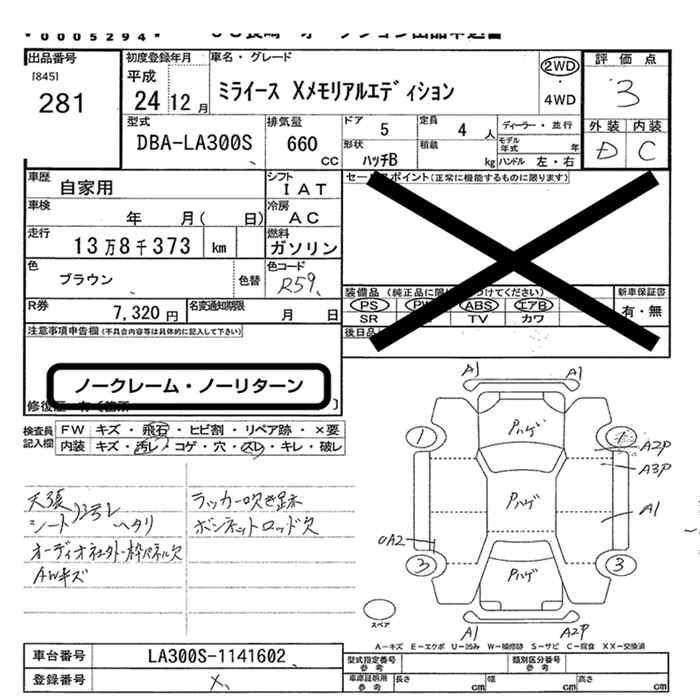 *0005294*
出品番号
[845]
281
初度登録年月
平成
24 12 月
車名・グレード
ミライース Xメモリアルエディション
2WD
・
4WD
評価点
3
外装 内装
D C
型式
DBA-LA300S
排気量
660
CC
ドア 5
定員 4 人
ディーラー・並行
形状
ハッチB
積載
kg
モデル年式 年
ハンドル 左・右
車歴
自家用
シフト
IAT
車検
年 月( 日)
冷房
AC
走行
13万8千373 km
燃料
ガソリン
色
ブラウン
色替
色コード
R59
R券
7,320 円
名変通知期限
月 日
セールスポイント(正常に機能するものに限ります)
装備品
PS PW ABS エアB
SR TV カワ
後日品
新車保証書
有・無
注意事項申告欄(不具合内容等は具体的に記入して下さい)
ノークレーム・ノーリターン
検査員
記入欄
FW キズ・飛石・ヒビ割・リペア跡・×要
内装 キズ・汚レ・コゲ・穴・スレ・キレ・破レ
天張
シート ヘタリ
オーディオ社外・枠パネル欠
AWキズ
ラッカー吹き跡
ボンネットロッド欠
A1 A1
Pハゲ
1 1
A2P
A3P
Pハゲ
A1
OA2
3 3
Pハゲ
スペア
A1 A2P
A-キズ E-エクボ U-凹み W-補修跡 S-サビ C-腐食 XX-交換済
車台番号
LA300S-1141602
登録番号
型式指定番号
参考
類別区分番号
参考
車庫証明用
参考
長さ cm 幅 cm 高さ cm